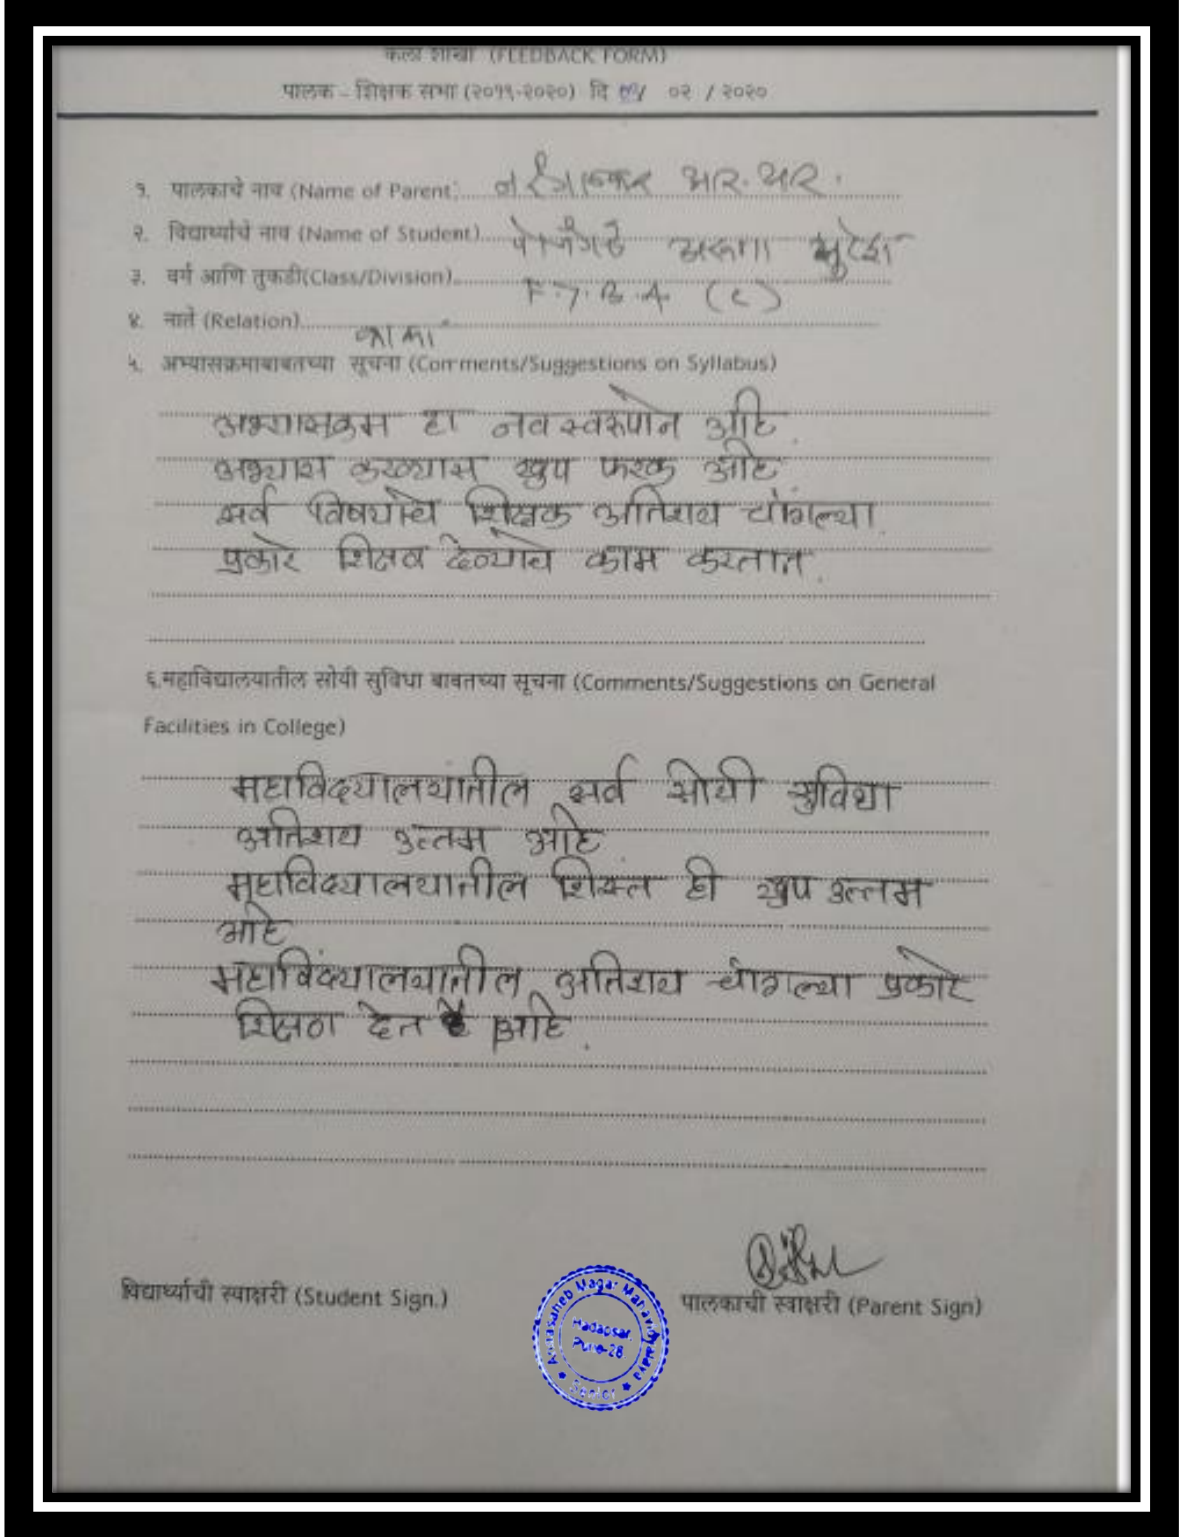 कला शाखा (FEEDBACK FORM)
पालक - शिक्षक सभा (२०१९-२०२०) दि / ०२ / २०२०
१. पालकाचे नाव (Name of Parent) आर. आर.
२. विद्यार्थ्याचे नाव (Name of Student) सुरेश
३. वर्ग आणि तुकडी(Class/Division) F.Y.B.A. (C)
४. नाते (Relation) काका
५. अभ्यासक्रमाबाबतच्या सूचना (Comments/Suggestions on Syllabus)
अभ्यासक्रम हा नव स्वरुपाने आहे.
अभ्यास करण्यास खुप फरक आहे
सर्व विषयांचे शिक्षक अतिशय चांगल्या
प्रकारे शिक्षण देण्याचे काम करतात.
६.महाविद्यालयातील सोयी सुविधा बाबतच्या सूचना (Comments/Suggestions on General
Facilities in College)
महाविद्यालयातील सर्व सोयी सुविधा
अतिशय उत्तम आहे
महाविद्यालयातील शिस्त ही खुप उत्तम
आहे
महाविद्यालयातील अतिशय चांगल्या प्रकारे
शिक्षण देत आहे.
विद्यार्थ्याची स्वाक्षरी (Student Sign.)
पालकाची स्वाक्षरी (Parent Sign)
Annasaheb Magar Mahavidyalaya
Hadapsar,
Pune-28